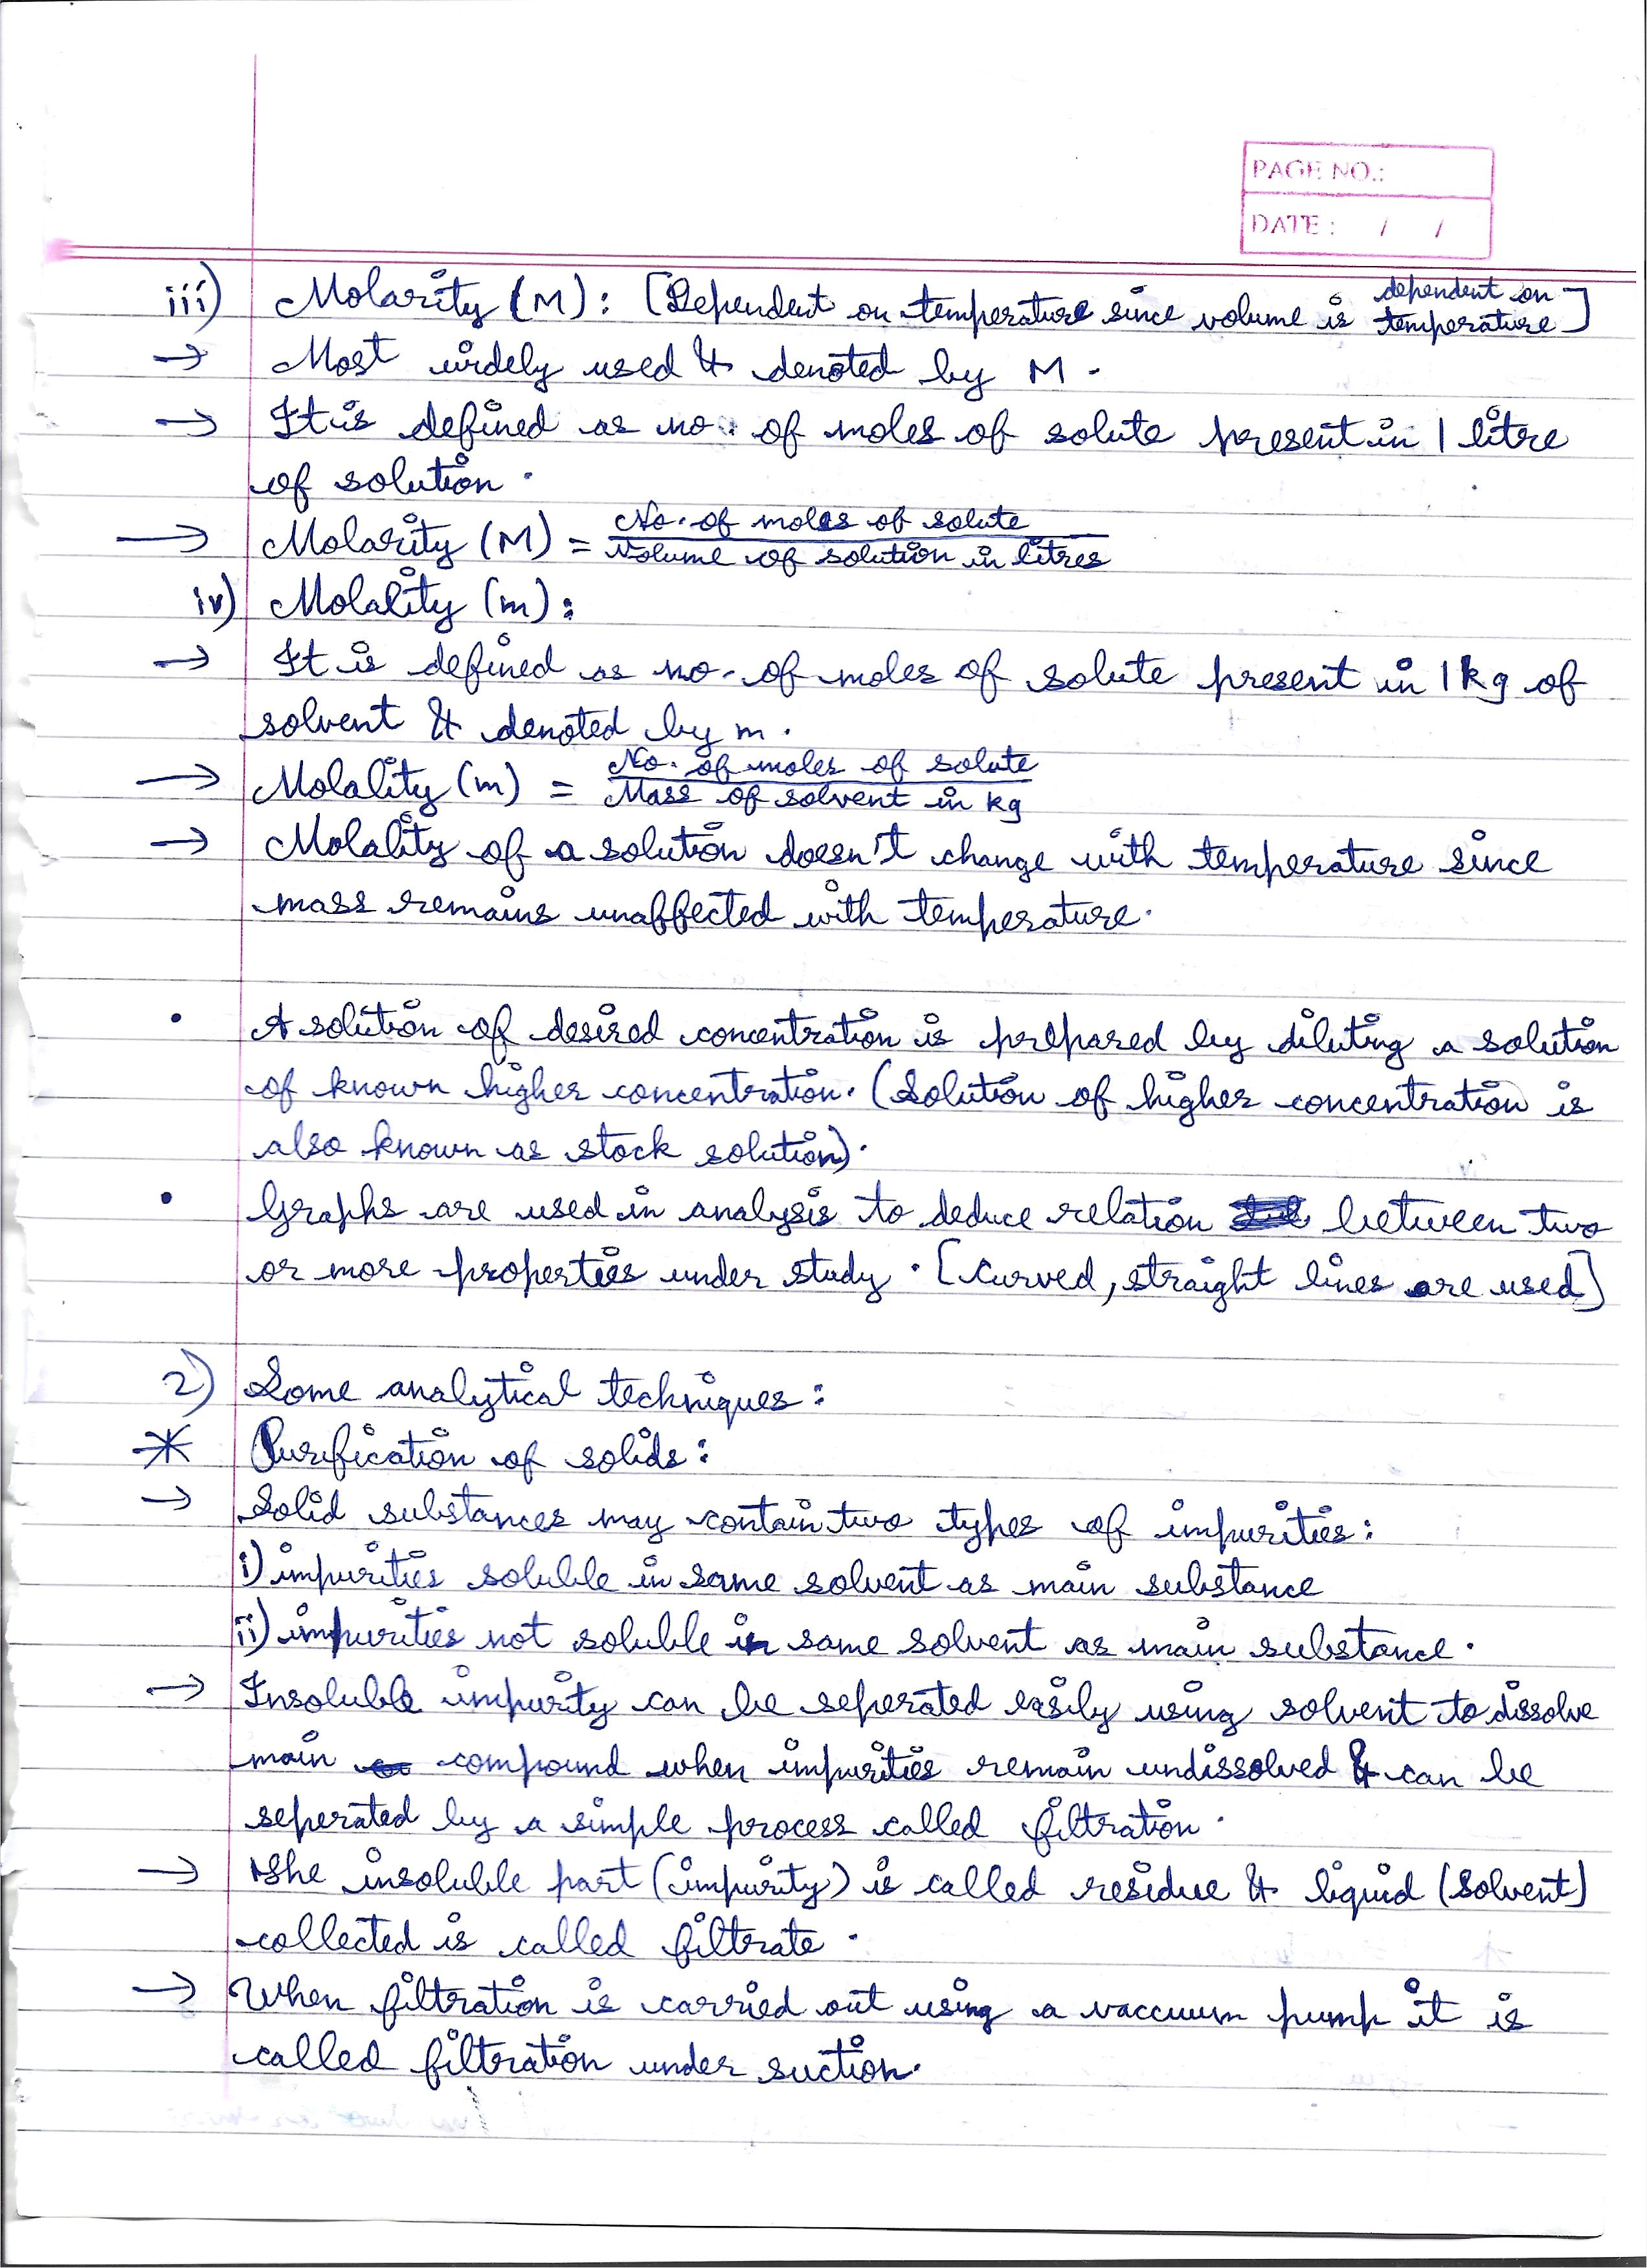 PAGE NO.:
DATE : / /
iii) Molarity (M) : [Dependent on temperature since volume is dependent on temperature]
→ Most widely used & denoted by M.
→ It is defined as no. of moles of solute present in 1 litre
of solution.
→ Molarity (M) = No. of moles of solute / Volume of solution in litres
iv) Molality (m) :
→ It is defined as no. of moles of solute present in 1 kg of
solvent & denoted by m.
→ Molality (m) = No. of moles of solute / Mass of solvent in kg
→ Molality of a solution doesn't change with temperature since
mass remains unaffected with temperature.
• A solution of desired concentration is prepared by diluting a solution
of known higher concentration. (Solution of higher concentration is
also known as stock solution).
• Graphs are used in analysis to deduce relation between two
or more properties under study. [Curved, straight lines are used]
2) Some analytical techniques :
* Purification of solids :
→ Solid substances may contain two types of impurities :
i) impurities soluble in same solvent as main substance
ii) impurities not soluble in same solvent as main substance.
→ Insoluble impurity can be seperated easily using solvent to dissolve
main compound when impurities remain undissolved & can be
seperated by a simple process called filtration.
→ The insoluble part (impurity) is called residue & liquid (solvent)
collected is called filtrate.
→ When filtration is carried out using a vaccuum pump it is
called filtration under suction.